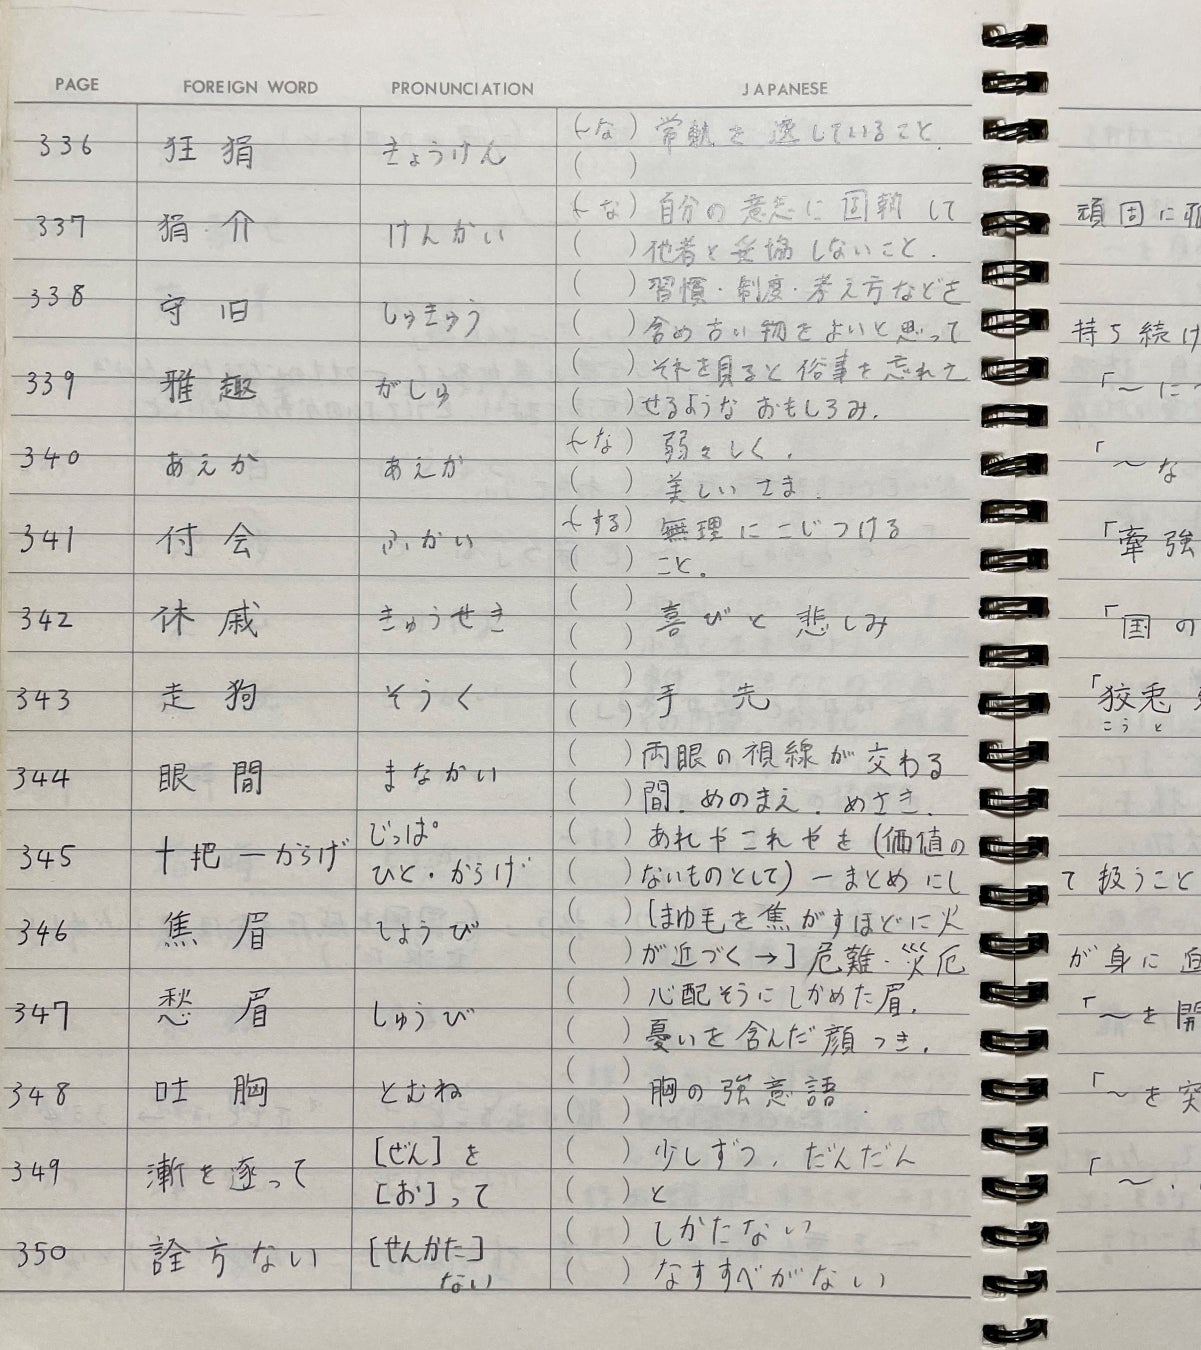 PAGE FOREIGN WORD PRONUNCIATION JAPANESE
336 狂狷 きょうけん (〜な) 常軌を逸していること.
( )
337 狷介 けんかい (〜な) 自分の意志に固執して 頑固に
( ) 他者と妥協しないこと.
338 守旧 しゅきゅう ( ) 習慣・制度・考え方などを
( ) 含め古い物をよいと思って 持ち続け
339 雅趣 がしゅ ( ) それを見ると俗事を忘れさ 「〜に
( ) せるような おもしろみ.
340 あえか あえか (〜な) 弱々しく. 「〜な
( ) 美しいさま.
341 付会 ふかい (〜する) 無理にこじつける 「牽強
( ) こと.
342 休戚 きゅうせき ( ) 喜びと悲しみ 「国の
( )
343 走狗 そうく ( ) 手先 「狡兎
( ) こうと
344 眼間 まなかい ( ) 両眼の視線が交わる
( ) 間. めのまえ. めさき.
345 十把一からげ じっぱ ( ) あれやこれやを (価値の
ひと・からげ ( ) ないものとして) 一まとめにし て扱うこと
346 焦眉 しょうび ( ) [まゆ毛を焦がすほどに火
( ) が近づく→] 危難・災厄 が身に迫
347 愁眉 しゅうび ( ) 心配そうにしかめた眉. 「〜を開
( ) 憂いを含んだ顔つき.
348 吐胸 とむね ( ) 胸の強意語. 「〜を突
( )
349 漸を逐って [ぜん]を ( ) 少しずつ. だんだん 「〜.
[お]って ( ) と
350 詮方ない [せんかた] ( ) しかたない
ない ( ) なすすべがない